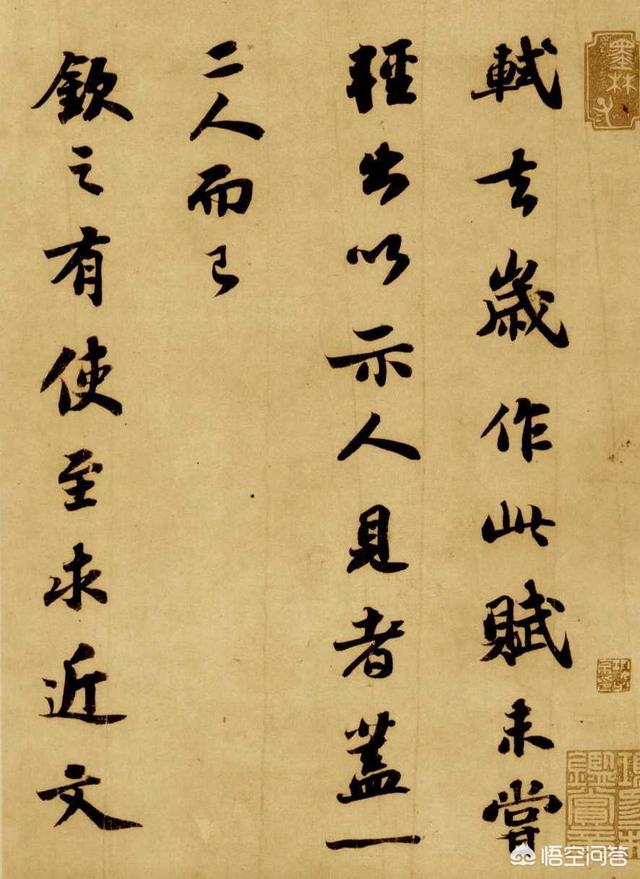 軾去歲作此賦未嘗
輕出以示人見者蓋一
二人而已
欽之有使至求近文
墨林
悟空问答